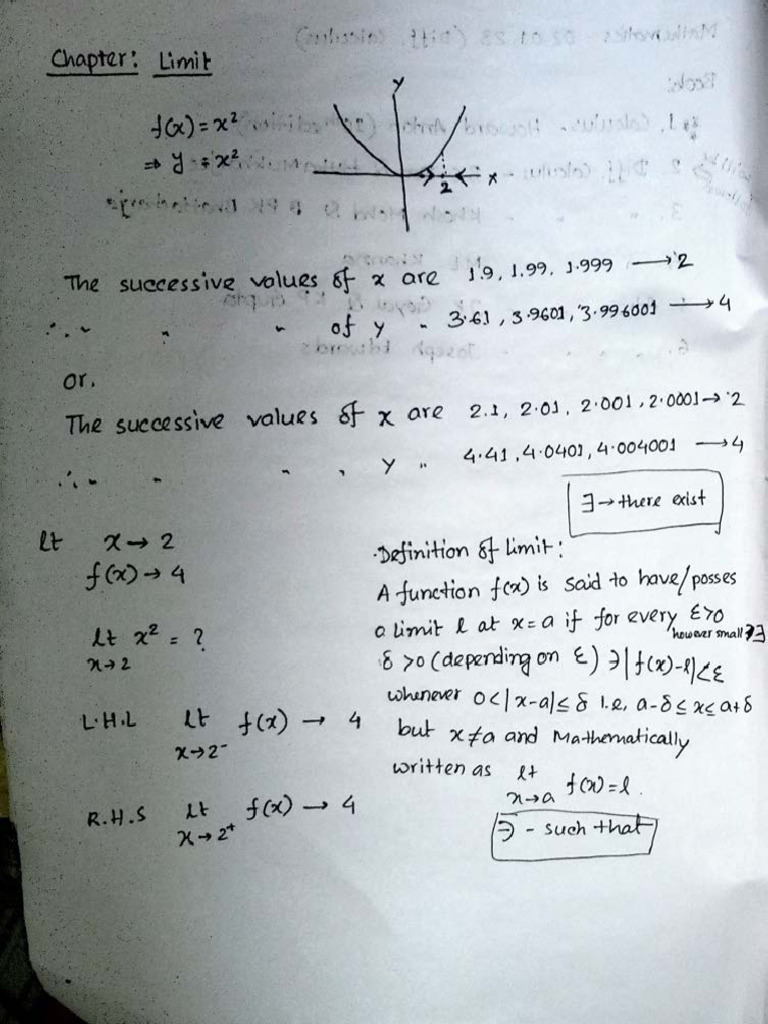 Chapter: Limit
f(x) = x²
⇒ y = x²
Y
2
x
The successive values of x are 1.9, 1.99, 1.999 ⟶ 2
∴ " " " of y " 3.61, 3.9601, 3.996001 ⟶ 4
or,
The successive values of x are 2.1, 2.01, 2.001, 2.0001 → 2
∴ " " " " y " 4.41, 4.0401, 4.004001 ⟶ 4
∃ → there exist
lt x → 2
f(x) → 4
lt x² = ?
x→2
L.H.L lt f(x) → 4
x→2⁻
R.H.S lt f(x) → 4
x→2⁺
Definition of limit:
A function f(x) is said to have/posses
a limit l at x = a if for every ε>0
however small ∃
δ >0 (depending on ε) ∋ |f(x)-l|<ε
whenever 0<|x-a|≤δ i.e, a-δ≤x≤a+δ
but x≠a and Mathematically
written as lt f(x) = l.
x→a
∋ - such that